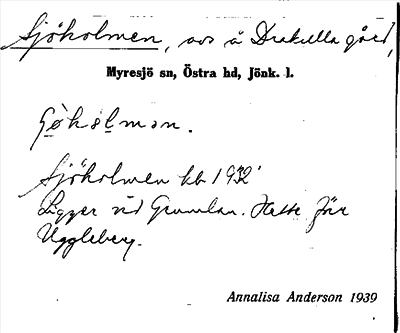 Sjöholmen, avs å Drakulla gård,
Myresjö sn, Östra hd, Jönk. l.
Sjöholmen kb 1932
Ligger vid Grumlan. Hette förr
Uggleberg.
Annalisa Anderson 1939